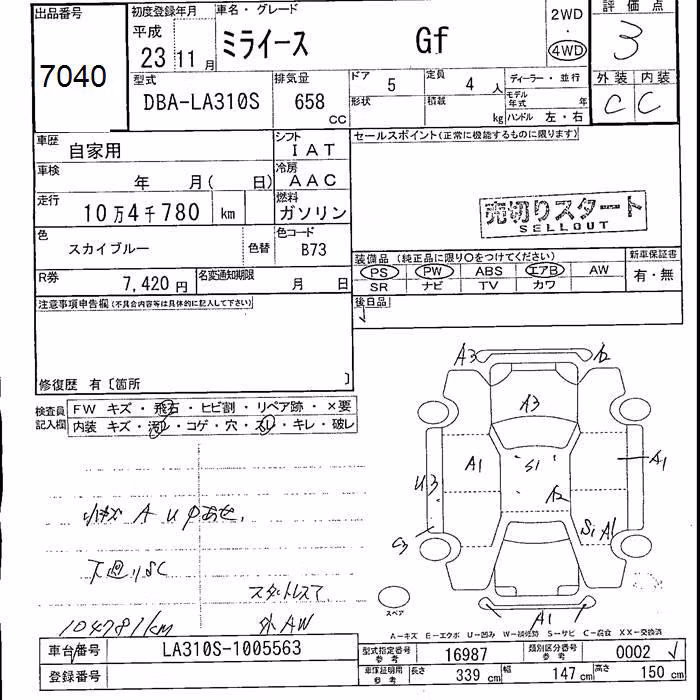 出品番号 初度登録年月 車名・グレード 2WD 評価点
7040 平成 23 11月 ミライース Gf ・ 4WD 3
型式 排気量 ドア 5 定員 4人 ディーラー・並行 外装 内装
DBA-LA310S 658 CC 形状 積載 kg モデル年式 年 C C
ハンドル 左・右
車歴 自家用 シフト IAT セールスポイント(正常に機能するものに限ります)
車検 年 月( 日) 冷房 AAC
走行 10万4千780 km 燃料 ガソリン 売切りスタート
SELLOUT
色 スカイブルー 色替 色コード B73
装備品 (純正品に限り〇をつけてください) 新車保証書
PS PW ABS エアB AW 有・無
SR ナビ TV カワ
R券 7,420円 名変通知期限 月 日
注意事項申告欄(不具合内容等は具体的に記入して下さい) 後日品
修復歴 有〔箇所 〕
検査員記入欄 FW キズ・飛石・ヒビ割・リペア跡・×要
内装 キズ・汚レ・コゲ・穴・スレ・キレ・破レ
A3 A2
A3
A1 S1 A1
U3 A2
C3 S1 A1
小キズ A U
下廻りSC
スタットレスタ
104781km 外AW
スペア
A1
A-キズ E-エクボ U-凹み W-補修跡 S-サビ C-腐食 XX-交換済
車台番号 LA310S-1005563 型式指定番号 参考 16987 類別区分番号 参考 0002
登録番号 車検証明用 参考 長さ 339 cm 幅 147 cm 高さ 150 cm